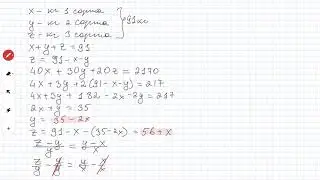 x - кг 1 сорта
y - кг 2 сорта } 91кг
z - кг 3 сорта
x + y + z = 91
z = 91 - x - y
40x + 30y + 20z = 2170
4x + 3y + 2(91 - x - y) = 217
4x + 3y + 182 - 2x - 2y = 217
2x + y = 35
y = 35 - 2x
z = 91 - x - (35 - 2x) = 56 + x
(z - y)/y = (y - x)/x
z/y - y/y = y/x - x/x